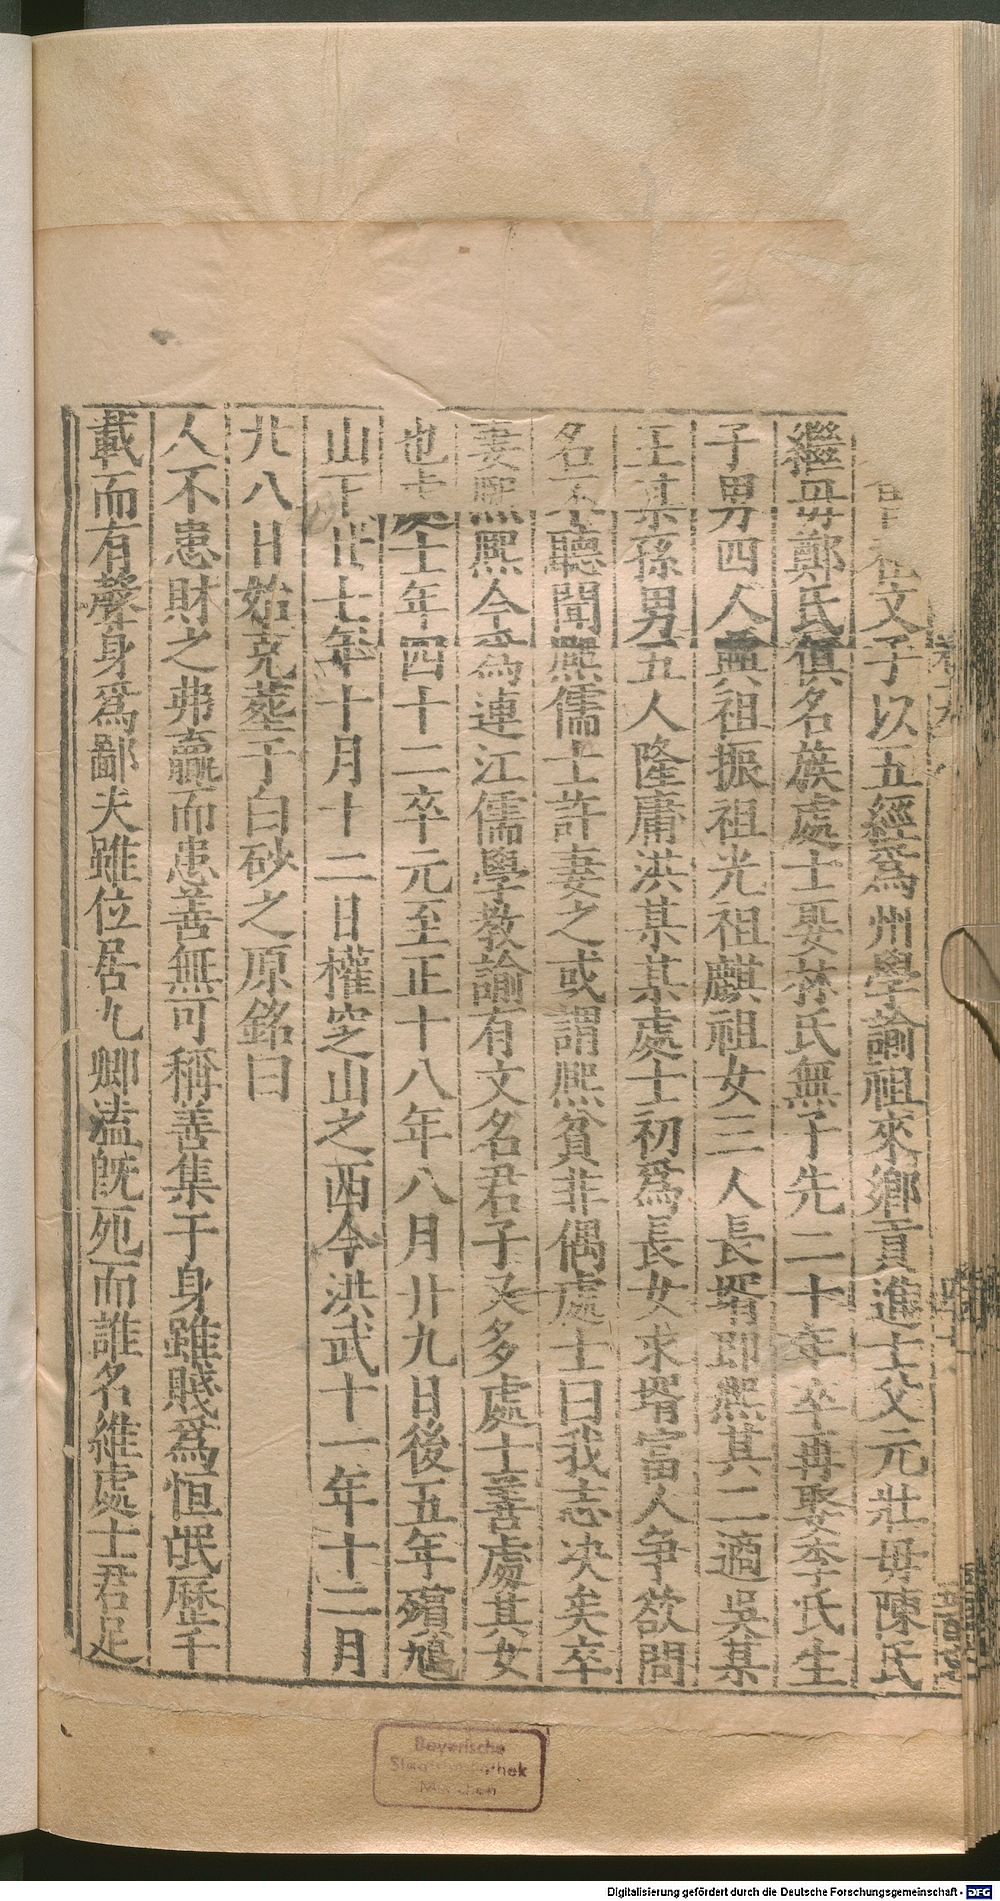 文子以五經爲州學諭祖來鄉貢進士父元壯母陳氏
繼母鄭氏俱名族處士娶林氏無子先二十年卒再娶李氏生
子男四人興祖振祖光祖麒祖女三人長壻即熙其二適吳某
王某孫男五人隆庸洪某某處士初爲長女求壻富人爭欲問
名不聽聞熙儒士許妻之或謂熙貧非偶處士曰我志决矣卒
妻熙熙今爲連江儒學教諭有文名君子又多處士善處其女
也 士年四十二卒元至正十八年八月廿九日後五年殯
山下廿七年十月十二日權空山之西今洪武十一年十二月
八日始克塟于白砂之原銘曰
人不患財之弗贏而患善無可稱善集于身雖賤爲恒氓歷千
載而有聲身爲鄙夫雖位居九卿溘旣死而誰名維處士君足
Bayerische
Staatsbibliothek
München
Digitalisierung gefördert durch die Deutsche Forschungsgemeinschaft - DFG